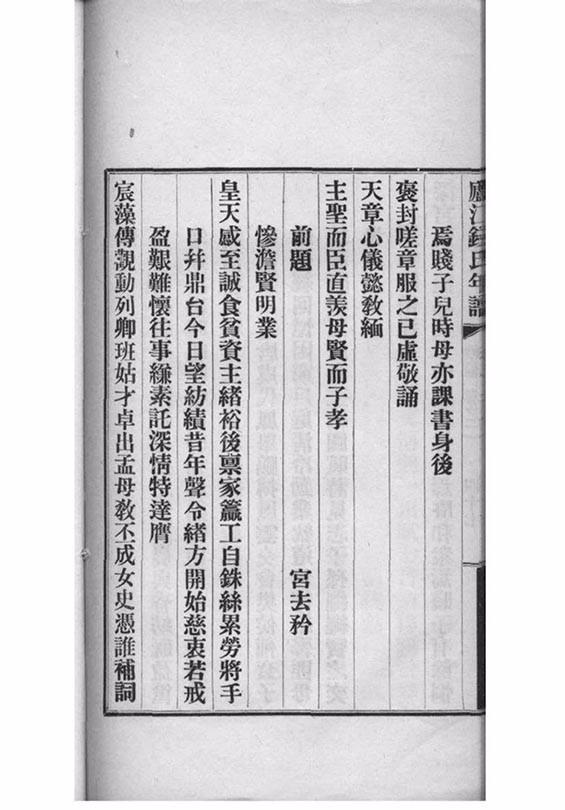 廬江錢氏年譜
焉賤子兒時母亦課書身後
褒封嗟章服之已虛敬誦
天章心儀懿教緬
主聖而臣直羨母賢而子孝
前題 宮去矜
慘澹賢明業
皇天感至誠食貧資主緒裕後禀家籯工自銖絲累勞將手
口幷鼎台今日望紡績昔年聲令緒方開始慈衷若戒
盈艱難懷往事縑素託深情特達膺
宸藻傳觀動列卿班姑才卓出孟母教丕成女史憑誰補詞